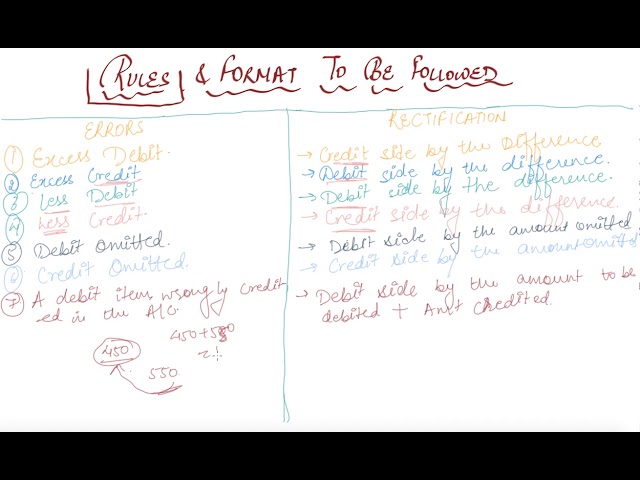 RULES & FORMAT TO BE FOLLOWED
ERRORS
① Excess Debit.
② Excess Credit
③ Less Debit
④ Less Credit.
⑤ Debit Omitted.
⑥ Credit Omitted.
⑦ A debit item wrongly credit
ed in the A/C.
450
550
RECTIFICATION
→ Credit side by the Difference
→ Debit side by the difference.
→ Debit side by the difference.
→ Credit side by the difference.
→ Debit side by the amount omitted
→ Credit side by the amount Omitted
→ Debit side by the amount to be
debited + Amt Credited.